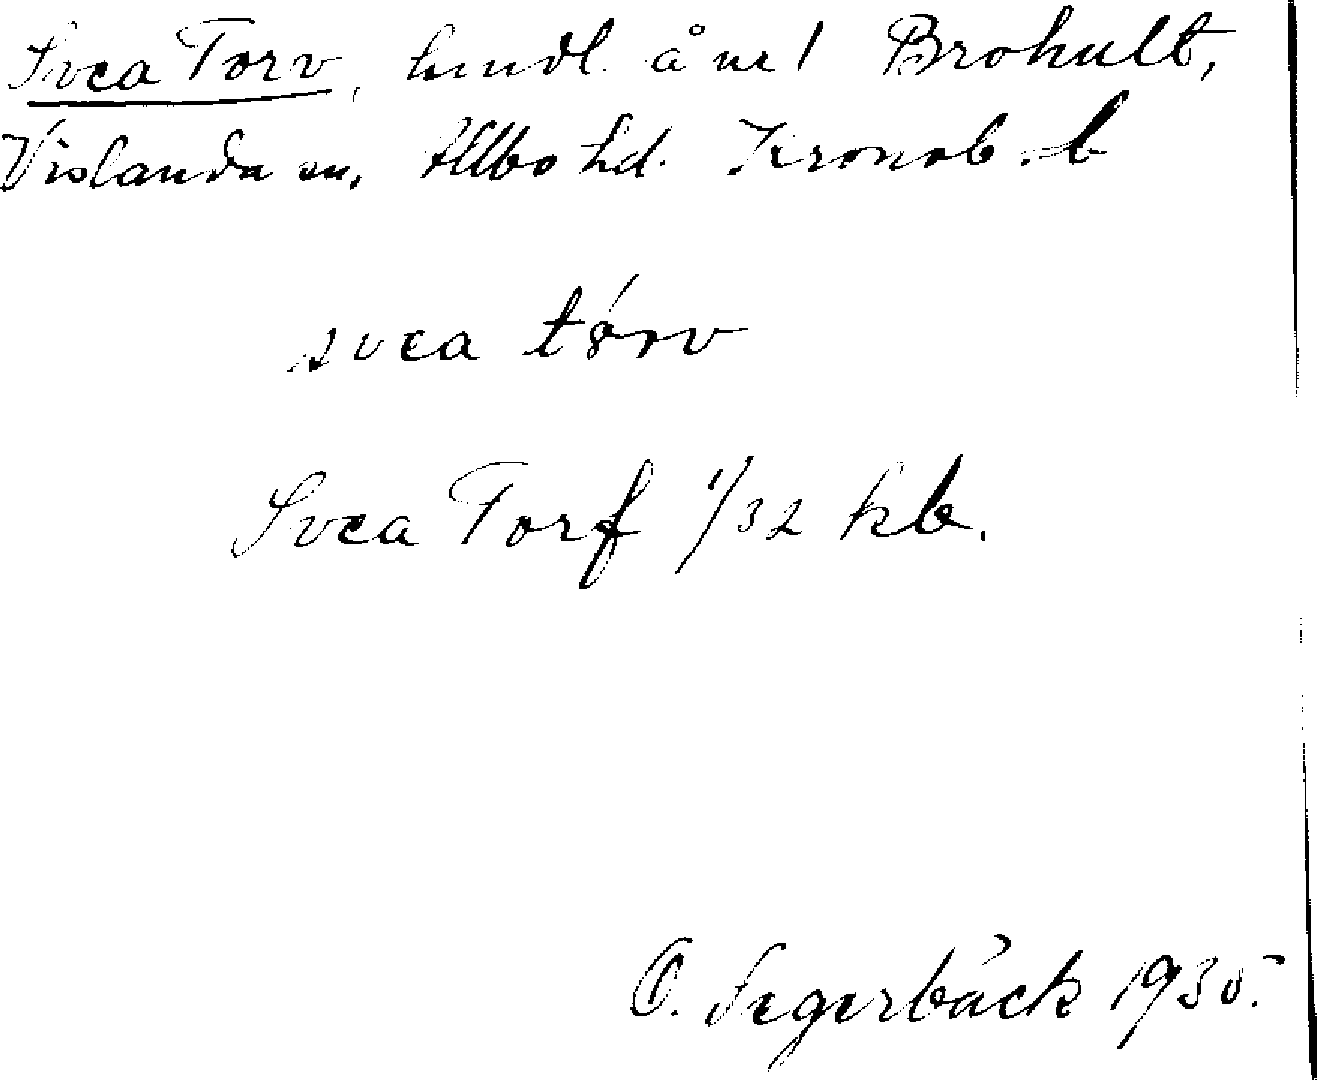 Svea Torv, hmdl. å nr 1 Brohult,
Vislanda sn, Allbo hd. Kronob. l
svea tórv
Svea Torf 1/32 kb.
O. Segerbäck 1935.